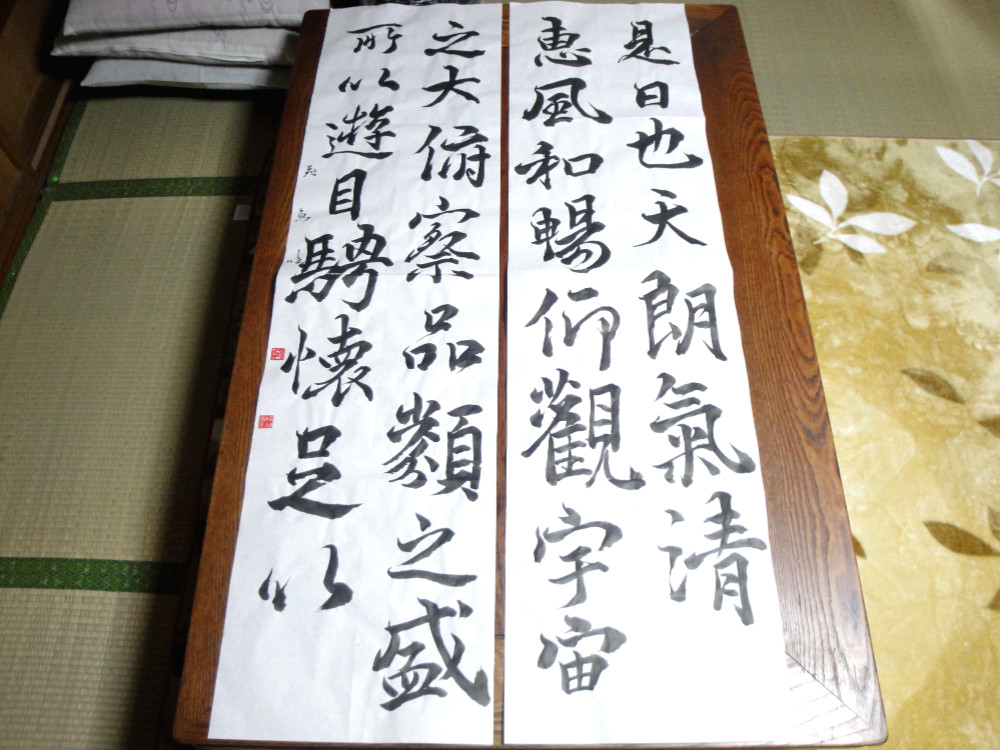 是日也天朗氣清
恵風和暢仰觀宇宙
之大俯察品類之盛
所以遊目騁懐足以